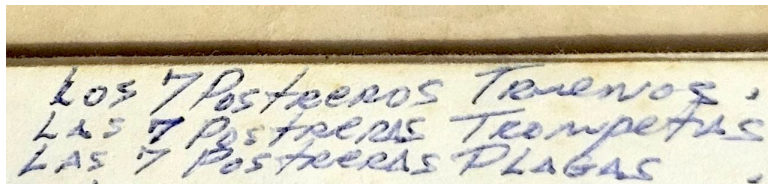 Los 7 Postreros Truenos.
Las 7 Postreras Trompetas
Las 7 Postreras Plagas.